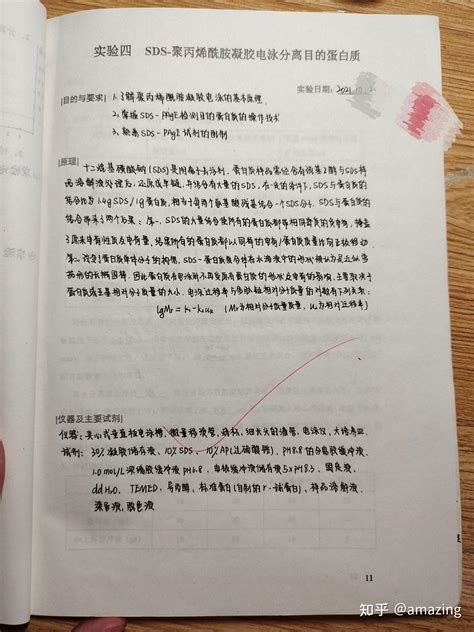 实验四 SDS-聚丙烯酰胺凝胶电泳分离目的蛋白质
实验日期: 2021.10.
[目的与要求] 1.了解聚丙烯酰胺凝胶电泳的基本原理
2.掌握SDS-PAGE检测目的蛋白质的操作技术
3.熟悉SDS-PAGE试剂的配制
[原理] 十二烷基磺酸钠(SDS)是阴离子去污剂,蛋白质样品常经含有巯基乙醇与SDS样
品溶解液处理后,还原成单链,并结合有大量的SDS,在一定条件下,SDS与蛋白质的
结合比为1.4gSDS/1g蛋白质,相当于每两个氨基酸残基结合一个SDS分子,SDS与蛋白质的
结合带来了两个后果:第一,SDS的大量结合使所有的蛋白质都带相同密度的负电荷,掩盖
了原来带有的正负电荷量,结果所有的蛋白质都以同样的电荷/蛋白质质量比向正极移动
第二,改变了蛋白质单体分子的构象,SDS-蛋白质复合物在水溶液中的形状被认为是近似雪
茄形的长椭圆棒,因此蛋白质在电泳时不再受原有蛋白质的形状及电荷的影响,主要取决于
蛋白质或亚基相对分子质量的大小.电泳迁移率与多肽链相对分子质量的对数有下列关系:
(Mr为相对分子质量,为相对迁移率)
[仪器及主要试剂]
仪器:夹心式垂直板电泳槽,微量移液管,烧杯,细长头的滴管,电泳仪,大培养皿.
试剂:30%凝胶储存液,10%SDS,10%AP(过硫酸铵),pH8.8的分离胶缓冲液,
1.0mol/L浓缩胶缓冲液pH6.8,电极缓冲液储存液5×pH8.3,固定液,
ddH₂O,TEMED,异丙醇,标准蛋白(自制的),样品溶解液,
染色液,脱色液
11
知乎 @amazing